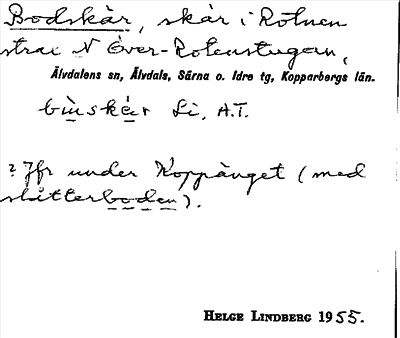 Bodskär, skär i Rotnen
strax N Över-Rotenstugan,
Älvdalens sn, Älvdals, Särna o. Idre tg, Kopparbergs län.
Li, A.T.
? Jfr under Koppänget (med
slåtterboden).
HELGE LINDBERG 1955.